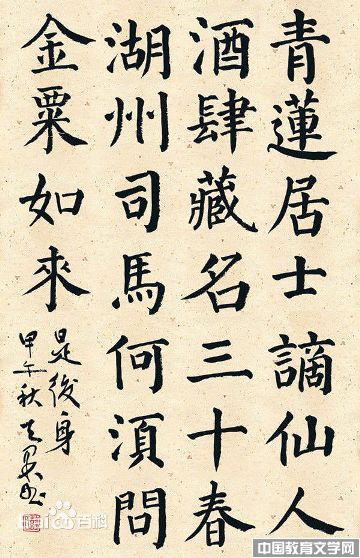 青蓮居士謫仙人
酒肆藏名三十春
湖州司馬何湏問
金粟如來
是後身
甲午秋
百科
中国教育文学网